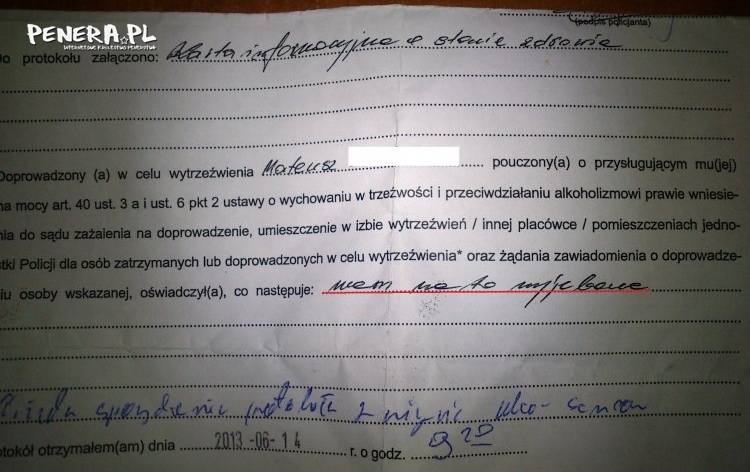 PENERA.PL
INTERNETOWE KRÓLESTWO PENERSTWA
(podpis policjanta)
Do protokołu załączono: Karta informacyjna o stanie zdrowia
Doprowadzony (a) w celu wytrzeźwienia Mateusz pouczony(a) o przysługującym mu(jej)
na mocy art. 40 ust. 3 a i ust. 6 pkt 2 ustawy o wychowaniu w trzeźwości i przeciwdziałaniu alkoholizmowi prawie wniesie-
nia do sądu zażalenia na doprowadzenie, umieszczenie w izbie wytrzeźwień / innej placówce / pomieszczeniach jedno-
stki Policji dla osób zatrzymanych lub doprowadzonych w celu wytrzeźwienia* oraz żądania zawiadomienia o doprowadze-
niu osoby wskazanej, oświadczył(a), co następuje: mam na to wyjebane
protokołu z alco-sensor
otokół otrzymałem(am) dnia 2013 -06- 14 r. o godz. 9 20